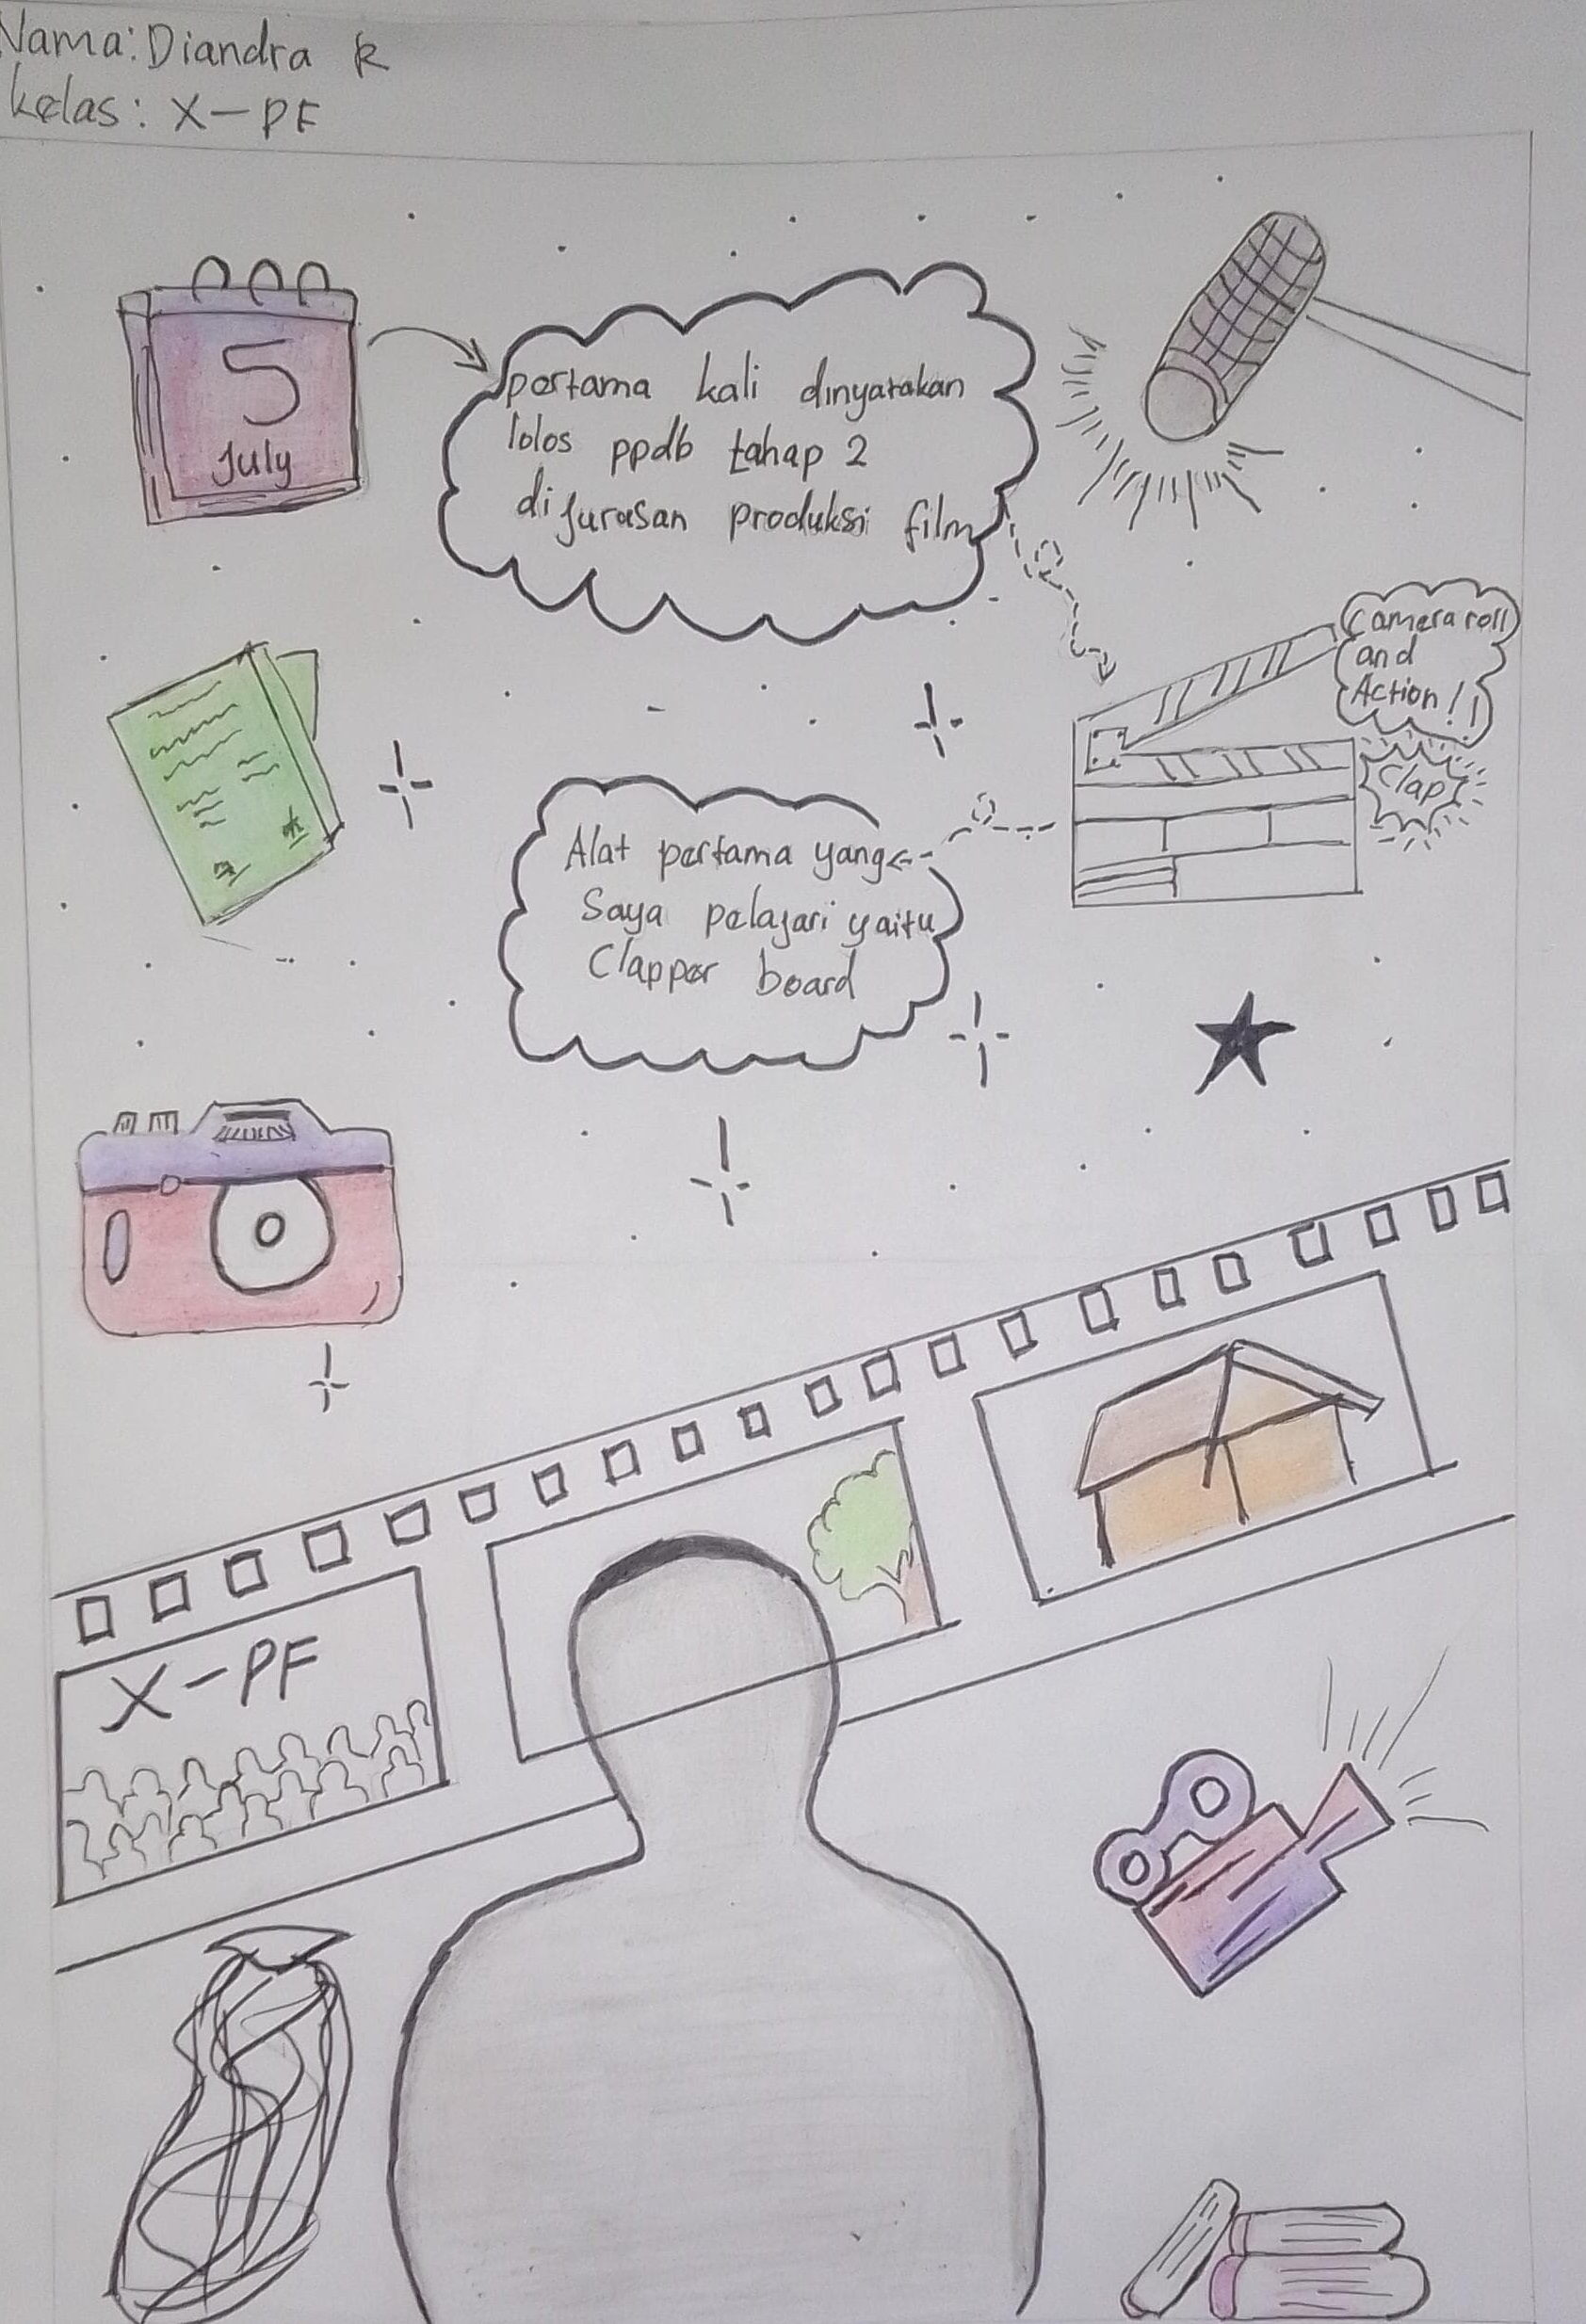 Nama: Diandra R
kelas: X-PF
5
July
pertama kali dinyatakan
lolos ppdb tahap 2
di jurusan produksi film
Camera roll
and
Action!!
Clap
Alat pertama yang
Saya pelajari yaitu
Clapper board
X-PF